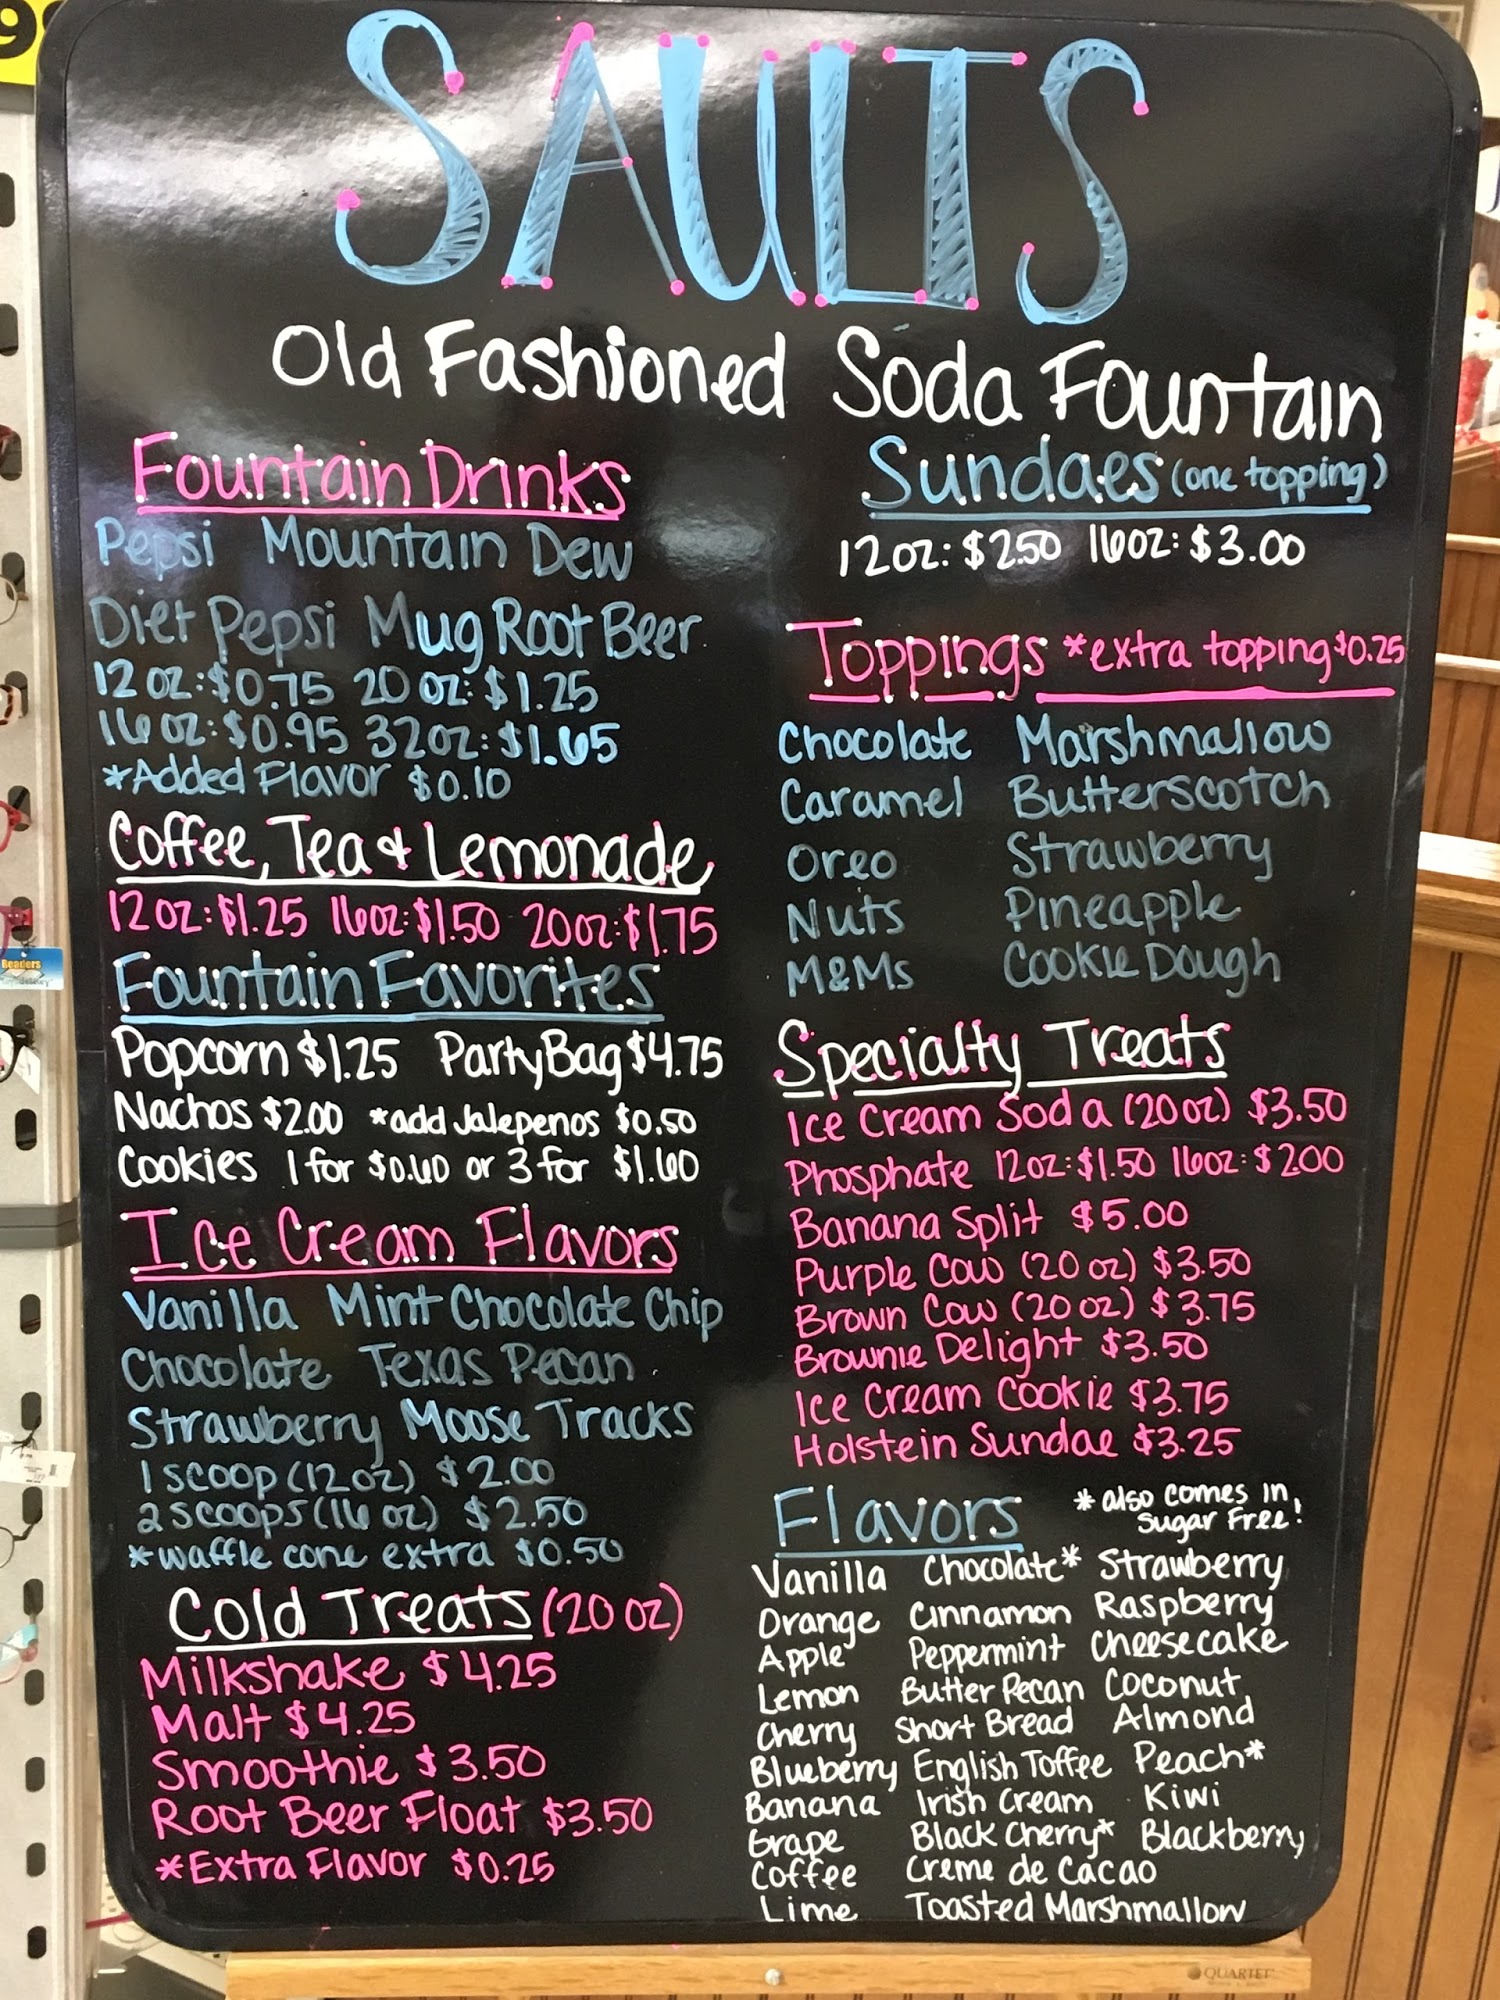 SAULTS
Old Fashioned Soda Fountain
Fountain Drinks
Pepsi Mountain Dew
Diet Pepsi Mug Root Beer
12 oz: $0.75 20 oz: $1.25
16 oz: $0.95 32 oz: $1.65
*Added Flavor $0.10
Coffee, Tea & Lemonade
12oz: $1.25 16oz: $1.50 20oz: $1.75
Fountain Favorites
Popcorn $1.25 Party Bag $4.75
Nachos $2.00 *add Jalepenos $0.50
Cookies 1 for $0.60 or 3 for $1.60
Ice Cream Flavors
Vanilla Mint Chocolate Chip
Chocolate Texas Pecan
Strawberry Moose Tracks
1 scoop (12oz) $2.00
2 scoops (16 oz) $2.50
*waffle cone extra $0.50
Cold Treats (20 oz)
Milkshake $4.25
Malt $4.25
Smoothie $3.50
Root Beer Float $3.50
*Extra Flavor $0.25
Sundaes (one topping)
12oz: $2.50 16oz: $3.00
Toppings *extra topping $0.25
Chocolate Marshmallow
Caramel Butterscotch
Oreo Strawberry
Nuts Pineapple
M&Ms Cookie Dough
Specialty Treats
Ice Cream Soda (20oz) $3.50
Phosphate 12oz: $1.50 16oz: $2.00
Banana Split $5.00
Purple Cow (20 oz) $3.50
Brown Cow (20 oz) $3.75
Brownie Delight $3.50
Ice Cream Cookie $3.75
Holstein Sundae $3.25
Flavors *also comes in
sugar free!
Vanilla Chocolate* Strawberry
Orange Cinnamon Raspberry
Apple Peppermint Cheesecake
Lemon Butter Pecan Coconut
Cherry Short Bread Almond
Blueberry English Toffee Peach*
Banana Irish Cream Kiwi
Grape Black Cherry* Blackberry
Coffee Creme de Cacao
Lime Toasted Marshmallow
QUARTET
Readers